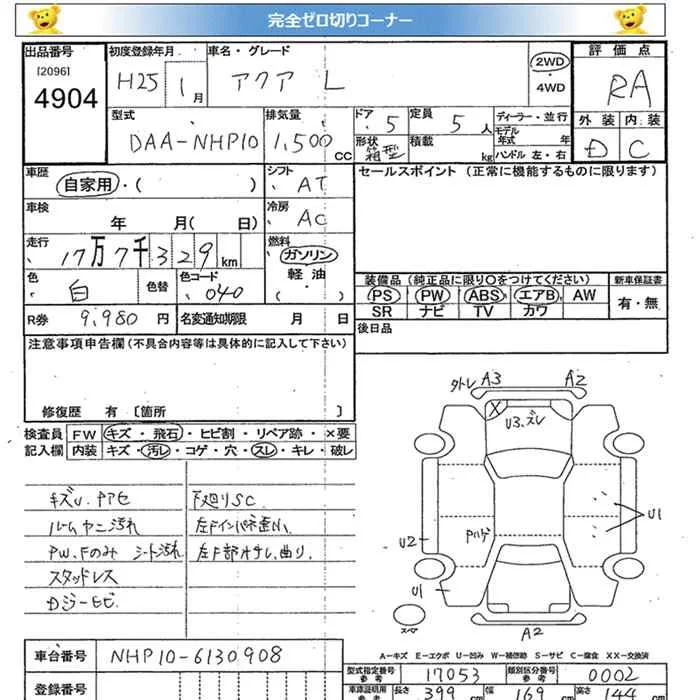 完全ゼロ切りコーナー
出品番号 初度登録年月 車名・グレード 評価点
[2096]
4904 H25 1月 アクア L 2WD・4WD RA
型式 排気量 ドア 定員 ディーラー・並行 外装 内装
DAA-NHP10 1,500cc 5 5人 モデル年式 年 D C
形状 箱型 積載 kg ハンドル 左・右
車歴 シフト セールスポイント (正常に機能するものに限ります)
自家用・( ) AT
車検 冷房
年 月(日) AC
走行 燃料
17万7千329km ガソリン
軽油
色 色替 色コード 装備品(純正品に限り○をつけてください) 新車保証書
白 040 PS PW ABS エアB AW 有・無
SR ナビ TV カワ
R券 9,980円 名変通知期限 月 日 後日品
注意事項申告欄(不具合内容等は具体的に記入して下さい)
修復歴 有〔箇所 〕
検査員 FW キズ・飛石・ヒビ割・リペア跡・×要
記入欄 内装 キズ・汚レ・コゲ・穴・スレ・キレ・破レ
キズU.アアセ 下廻りSC
ルームヤニ汚れ
PW.Fのみ シート汚れ
スタッドレス
外トレ A3 A2
X U3.ズレ
Pハゲ U1
U2
U1
スペア
A2
A－キズ E－エクボ U－凹み W－補修跡 S－サビ C－腐食 XX－交換済
車台番号 NHP10-6130908
型式指定番号 参考 17053 類別区分番号 参考 0002
登録番号 車庫証明用 参考 長さ 399cm 幅 169cm 高さ 144cm